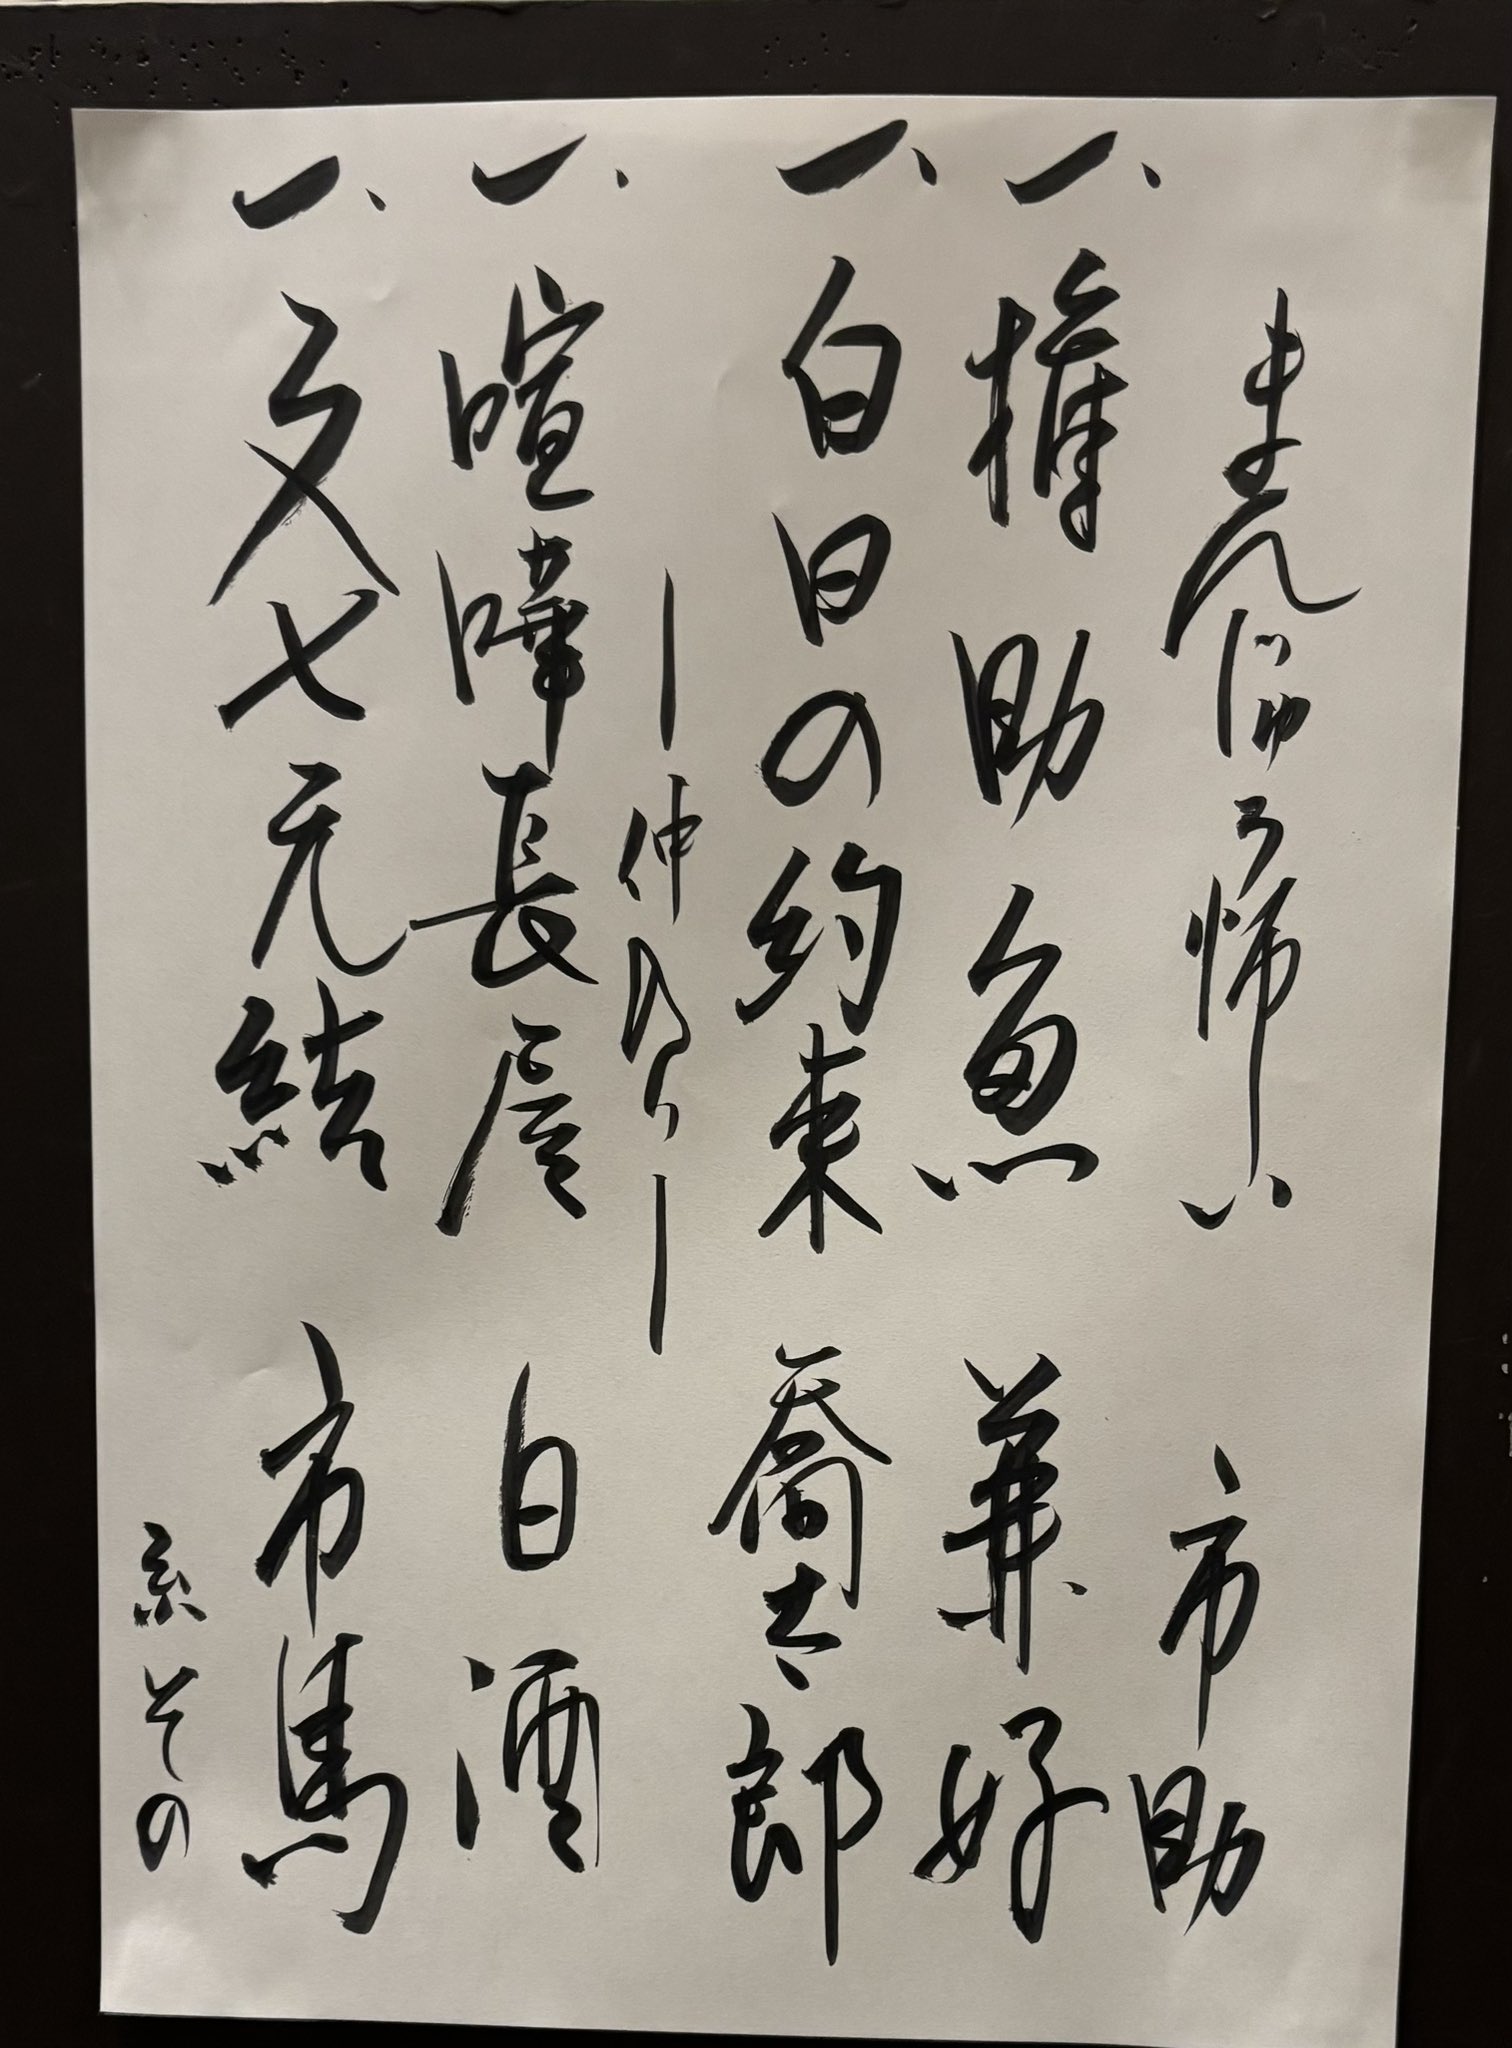 まんじゅう怖い 市助
一、権助魚 兼好
一、白日の約束 喬太郎
―仲入り―
一、喧嘩長屋 白酒
一、文七元結 市馬
糸 その